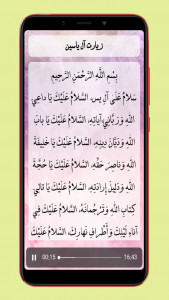 زیارت آل یاسین
بِسْمِ اللَّهِ الرَّحْمَنِ الرَّحِيمِ
سَلامٌ عَلَى آلِ يس، السَّلامُ عَلَيْكَ يَا دَاعِيَ
اللَّهِ وَرَبَّانِيَّ آيَاتِهِ، السَّلامُ عَلَيْكَ يَا بَابَ
اللَّهِ وَدَيَّانَ دِينِهِ، السَّلامُ عَلَيْكَ يَا خَلِيفَةَ
اللَّهِ وَنَاصِرَ حَقِّهِ، السَّلامُ عَلَيْكَ يَا حُجَّةَ
اللَّهِ وَدَلِيلَ إِرَادَتِهِ، السَّلامُ عَلَيْكَ يَا تَالِيَ
كِتَابِ اللَّهِ وَتَرْجُمَانَهُ، السَّلامُ عَلَيْكَ فِي
آنَاءِ لَيْلِكَ وَأَطْرَافِ نَهَارِكَ، السَّلامُ عَلَيْكَ
00:15 16:43